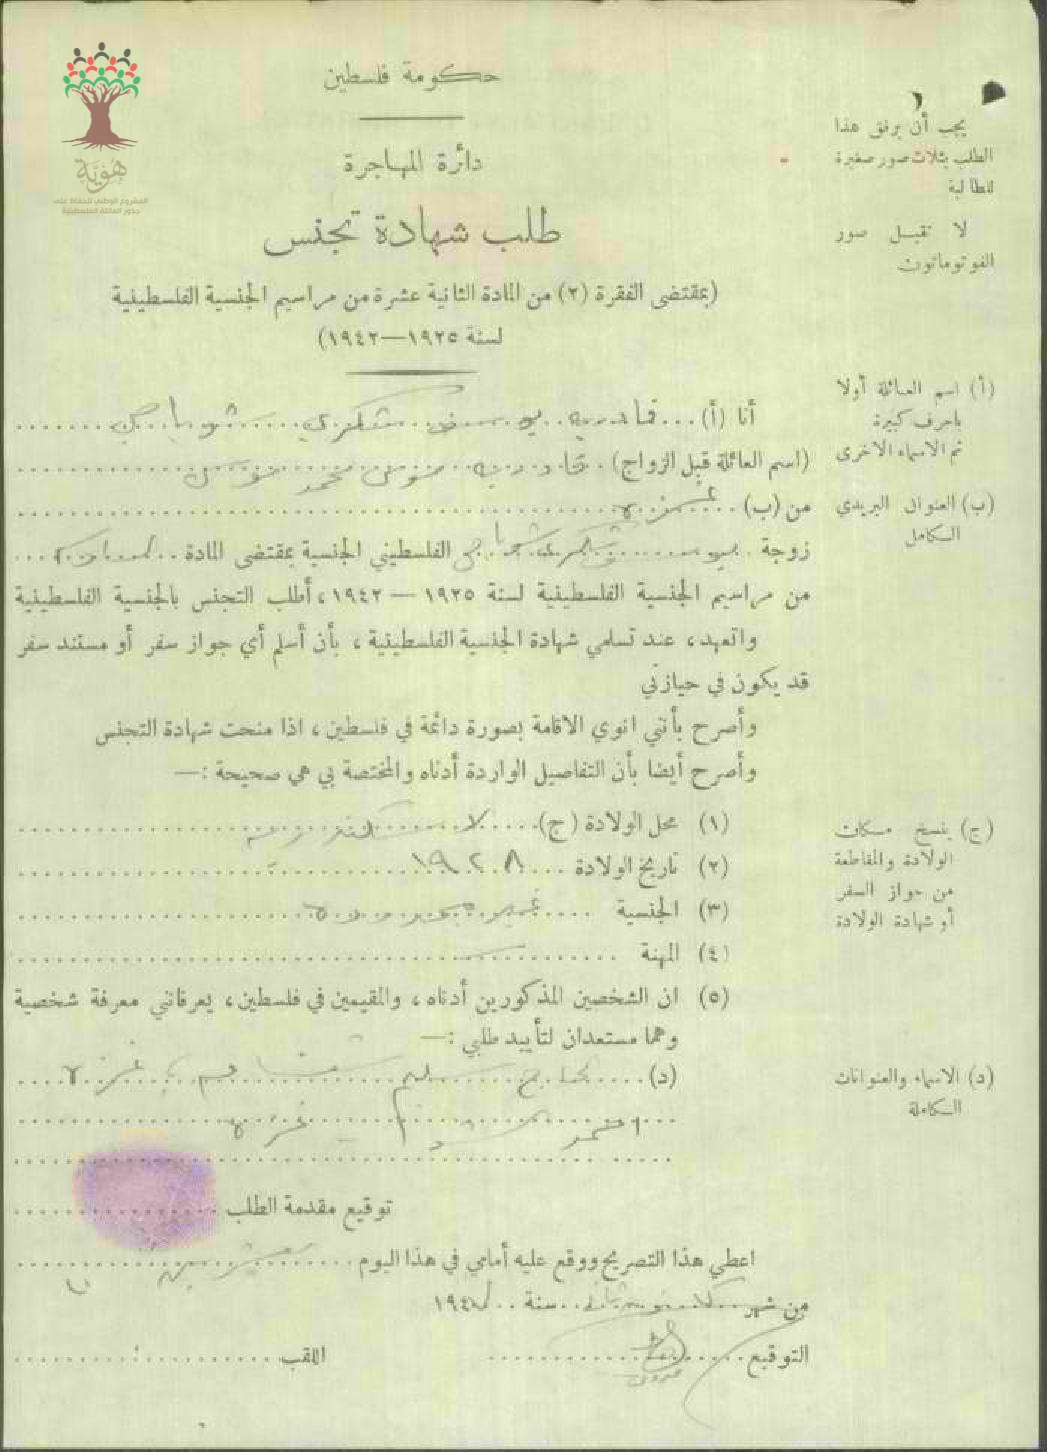 هُويَّة
المشروع الوطني للحفاظ على
جذور العائلة الفلسطينية
حكومة فلسطين
دائرة المهاجرة
طلب شهادة تجنس
(بمقتضى الفقرة (٢) من المادة الثانية عشرة من مراسيم الجنسية الفلسطينية
لسنة ١٩٢٥—١٩٤٢)
يجب أن يرفق هذا
الطلب بثلاث صور صغيرة
للطالبة
لا تقبل صور
الفوتوماتون
أنا (أ) ... يوسف شكري
(اسم العائلة قبل الزواج) ... موسى محمد موسى
من (ب) ... غزة
زوجة ... يوسف شكري ... الفلسطيني الجنسية بمقتضى المادة ...
من مراسيم الجنسية الفلسطينية لسنة ١٩٢٥ — ١٩٤٢، أطلب التجنس بالجنسية الفلسطينية
واتعهد، عند تسلمي شهادة الجنسية الفلسطينية، بأن أسلم أي جواز سفر أو مستند سفر
قد يكون في حيازتي
وأصرح بأنني انوي الاقامة بصورة دائمة في فلسطين، اذا منحت شهادة التجنس
وأصرح أيضا بأن التفاصيل الواردة أدناه والمختصة بي هي صحيحة :—
(١) محل الولادة (ج) ...
(٢) تاريخ الولادة ... ١٩٢٨
(٣) الجنسية ... غير
(٤) المهنة ...
(٥) ان الشخصين المذكورين أدناه، والمقيمين في فلسطين، يعرفانني معرفة شخصية
وهما مستعدان لتأييد طلبي :—
(د) ... سليم ... غزة
احمد ... غزة
توقيع مقدمة الطلب ...
اعطي هذا التصريح ووقع عليه أمامي في هذا اليوم ...
من شهر كانون ثاني سنة ١٩٤
التوقيع ... اللقب ...
(أ) اسم العائلة أولا
باحرف كبيرة
ثم الاسماء الاخرى
(ب) العنوان البريدي
الكامل
(ج) ينسخ مكان
الولادة والمقاطعة
من جواز السفر
أو شهادة الولادة
(د) الاسماء والعنوانات
الكاملة